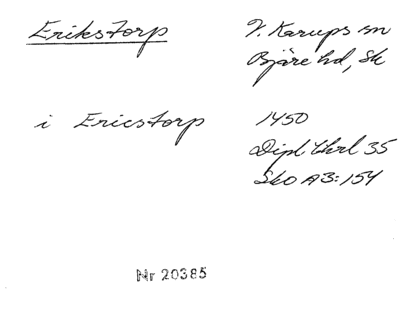 Erikstorp
V. Karups sn
Bjäre hd, Sk
i Ericstorp
1450
Dipl Chrl 35
Sko A3:154
Nr 20385